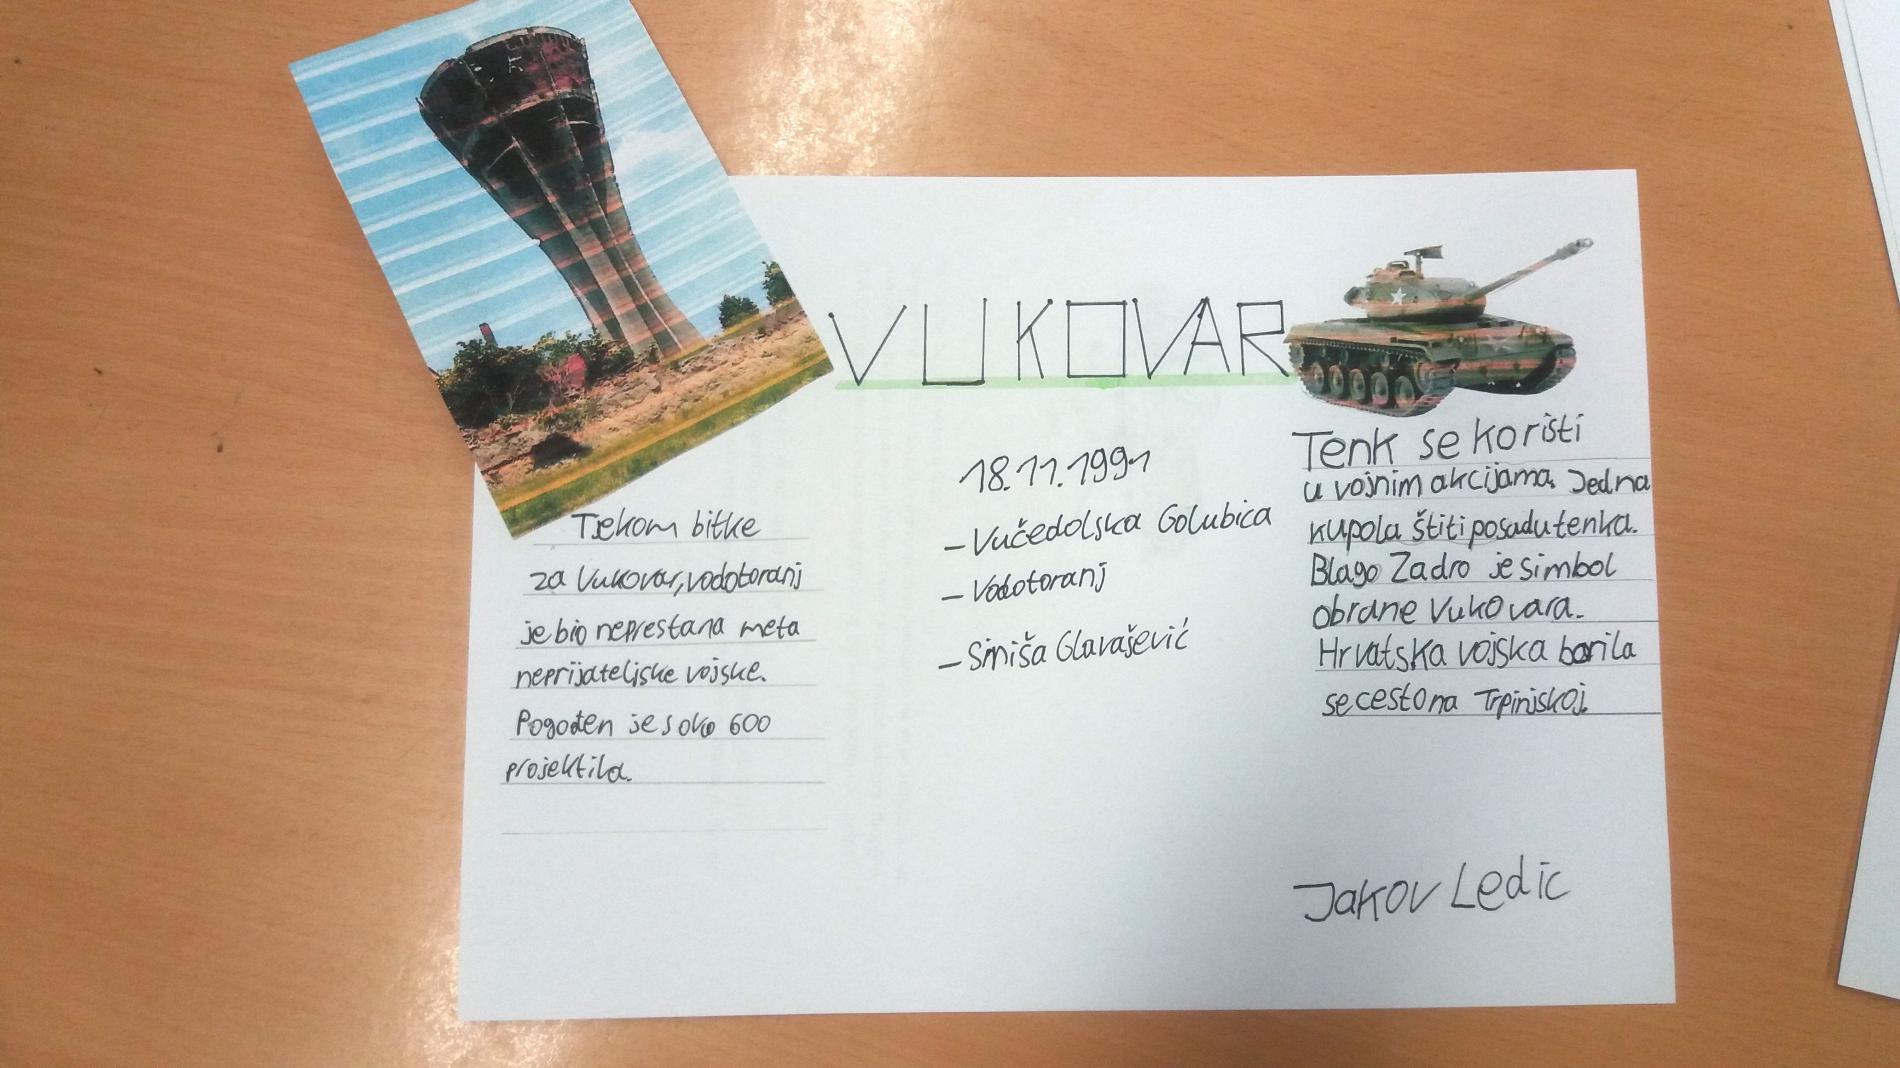 VUKOVAR
Tjekom bitke
za Vukovar, vodotoranj
je bio neprestana meta
neprijateljske vojske.
Pogođen je s oko 600
projektila.
18.11.1991
– Vučedolska Golubica
– Vodotoranj
– Siniša Glavašević
Tenk se koristi
u vojnim akcijama. Jedna
kupola štiti posadu tenka.
Blago Zadro je simbol
obrane Vukovara.
Hrvatska vojska borila
se cesto na Trpinjskoj.
Jakov Ledic